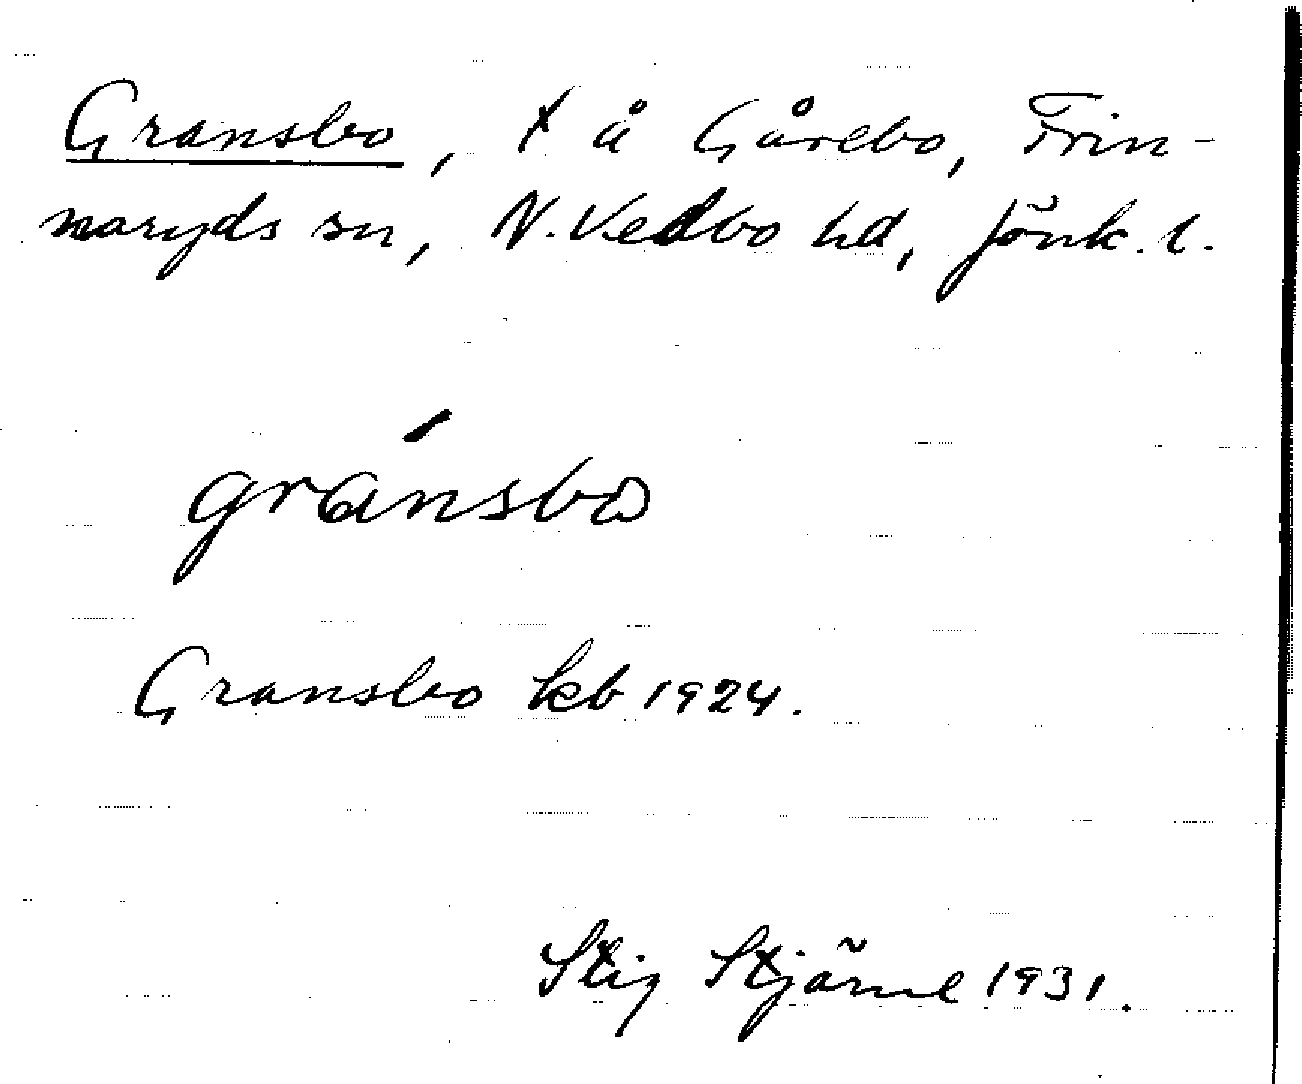 Gransbo, t å Gårebo, Frin-
naryds sn, N. Vedbo hd, Jönk. l.
gránsbo
Gransbo kb 1924.
Stig Stjärne 1931.